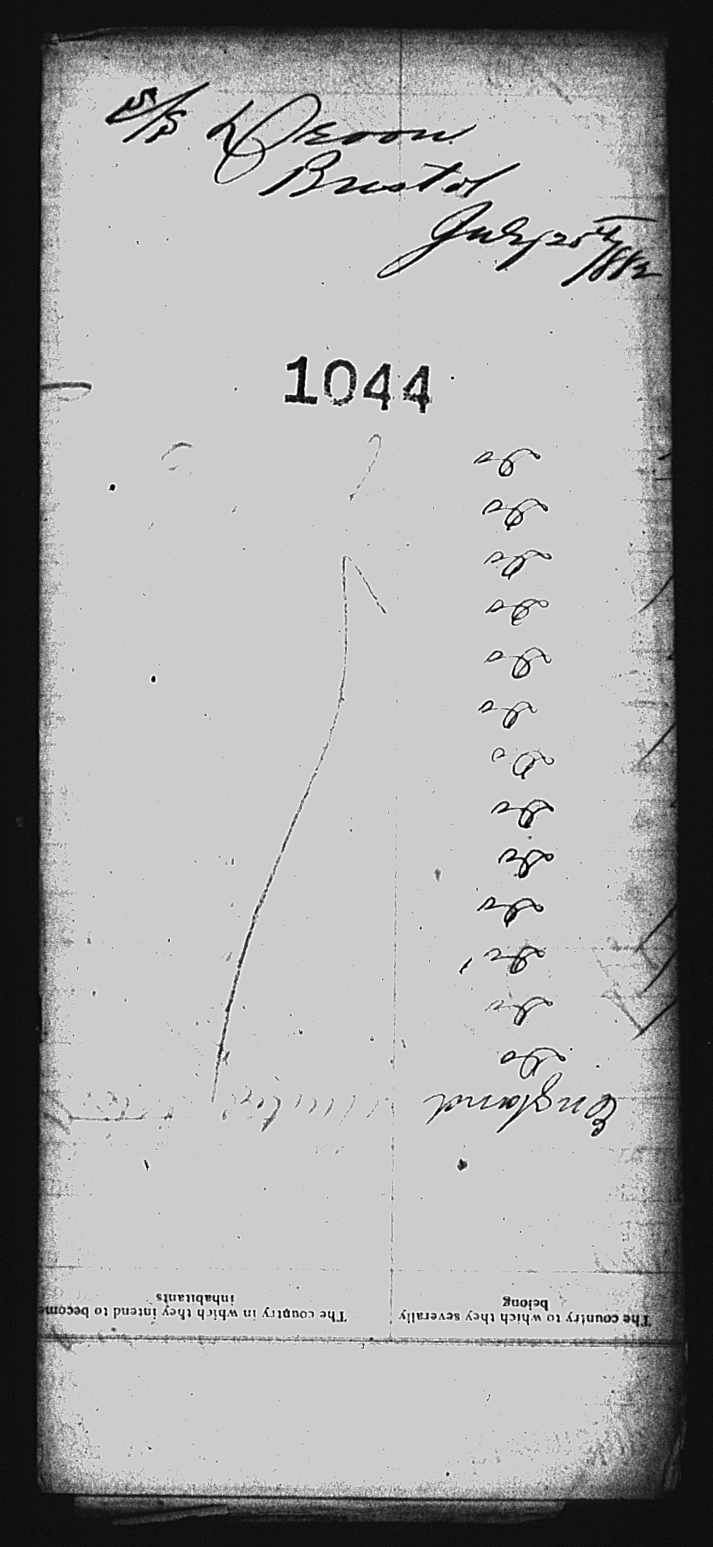 S/S Devon
Bristol
July 25th/1882
1044
The country to which they severally
belong
The country in which they intend to become
inhabitants
England
Do
Do
Do
Do
Do
Do
Do
Do
Do
Do
Do
Do
Do